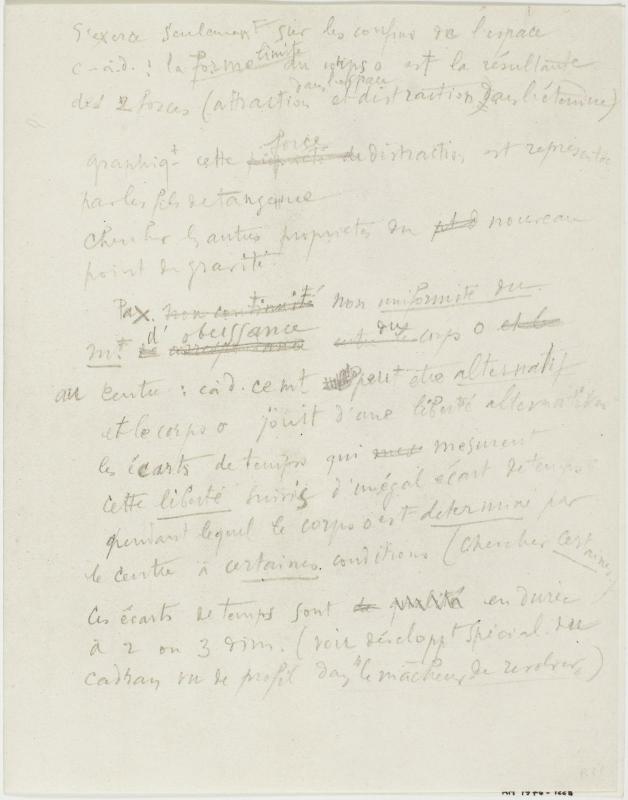 S'exerce seulement sur les confins de l'espace
c-à.d. : la forme limite du corps o est la résultante
des 2 forces (attraction dans l'espace et distraction dans l'étendue)
graphiqt cette force de distraction est représentée
par les fils de tangence
Chercher les autres propriétés du pt d nouveau
point de gravité.
Par x. non continuité non uniformité du
mt d'obeissance du corps o et le
au centre : càd. ce mt peut être alternatif
et le corps o jouit d'une liberté alternative
les écarts de temps qui mesurent
cette liberté suivis d'inégal écart de temps
pendant lequel le corps o est determiné par
le centre à certaines conditions (Chercher certaines)
Ces écarts de temps sont en durée
à 2 ou 3 dim. (voir développt spécial du
cadran vu de profil dans le mâcheur de revolver)